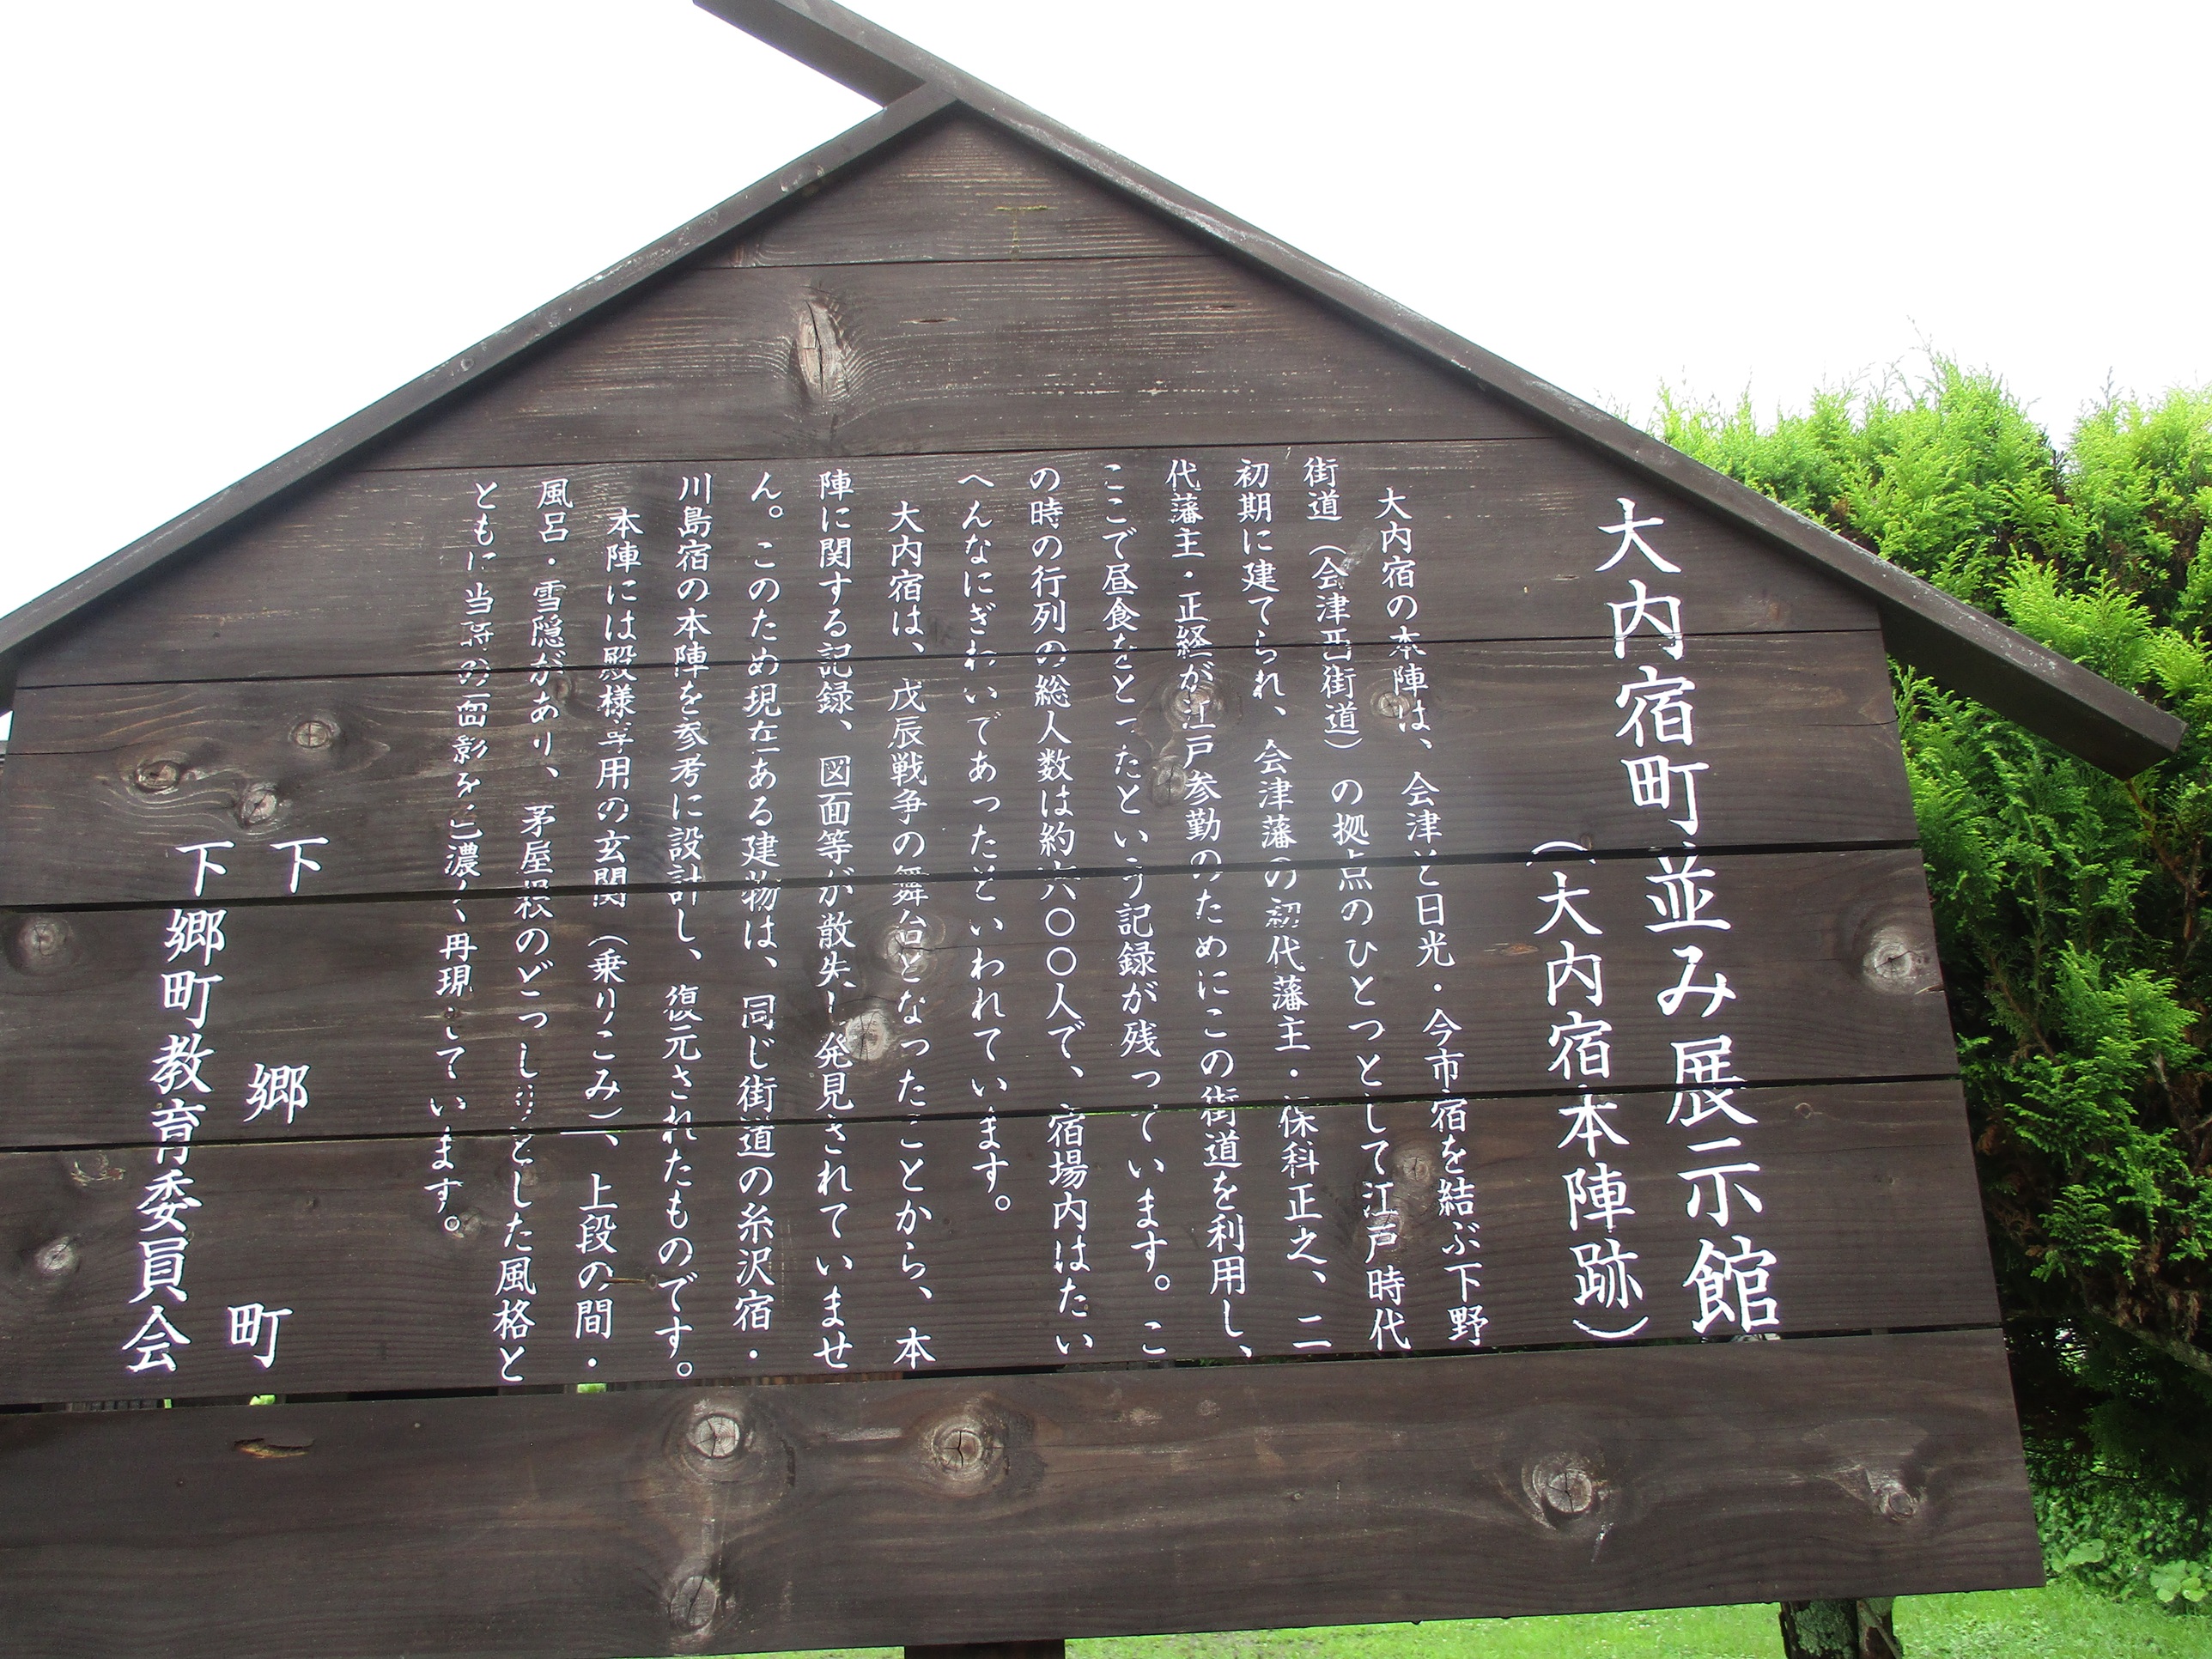 大内宿町並み展示館
（大内宿本陣跡）
大内宿の本陣は、会津と日光・今市宿を結ぶ下野
街道（会津西街道）の拠点のひとつとして江戸時代
初期に建てられ、会津藩の初代藩主・保科正之、二
代藩主・正経が江戸参勤のためにこの街道を利用し、
ここで昼食をとったという記録が残っています。こ
の時の行列の総人数は約六〇〇人で、宿場内はたい
へんなにぎわいであったといわれています。
大内宿は、戊辰戦争の舞台となったことから、本
陣に関する記録、図面等が散失し発見されていませ
ん。このため現在ある建物は、同じ街道の糸沢宿・
川島宿の本陣を参考に設計し、復元されたものです。
本陣には殿様専用の玄関（乗りこみ）、上段の間・
風呂・雪隠があり、茅屋根のどっしりとした風格と
ともに当時の面影を色濃く再現しています。
下郷町
下郷町教育委員会